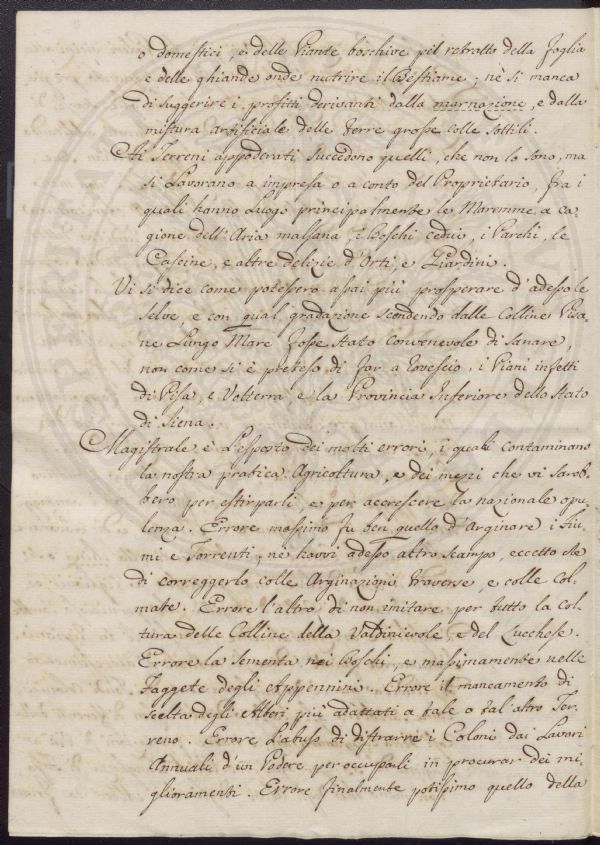 o domestici, e delle Piante boschive pel retratto della foglia
e delle ghiande onde nutrire il Bestiame, nè si manca
di suggerire i profitti derivanti dalla marnazione, e dalla
mistura artificiale delle terre grosse colle sottili.
Ai Terreni appoderati succedono quelli, che non lo sono, ma
si Lavorano a impresa o a conto del Proprietario, fra i
quali hanno Luogo principalmente le Maremme a ca-
gione dell'Aria malsana, i Boschi cedui, i Parchi, le
Cascine, e altre delizie d'Orti, e Giardini.
Vi si dice come potessero assai più prosperare d'adesso le
selve, e con qual gradazione scendendo dalle Colline Pisa-
ne Lungo Mare fosse stato convenevole di sanare,
non come si è preteso di far a rovescio, i Piani infetti
di Pisa, e Volterra e la Provincia Inferiore dello Stato
di Siena.
Magistrale è l'esposto dei molti errori, i quali contaminano
la nostra pratica Agricoltura, e dei mezzi che vi sareb-
bero per estirparli, e per accrescere la nazionale opu-
lenza. Errore massimo fu ben quello d'Arginare i Fiu-
mi e Torrenti, nè havvi adesso altro scampo, eccetto che
di correggerlo colle Arginazioni traverse, e colle Col-
mate. Errore l'altro di non imitare per tutto la col-
tura delle Colline della Valdinievole, e del Lucchese.
Errore la sementa nei Boschi, e massimamente nelle
Faggete degli Appennini. Errore il mancamento di
scelta degli Alberi più adattati a tale o tal'altro Ter-
reno. Errore l'abuso di distrarre i Coloni dai Lavori
Annuali d'un Podere per occuparli in procurar dei mi-
glioramenti. Errore finalmente potissimo quello della